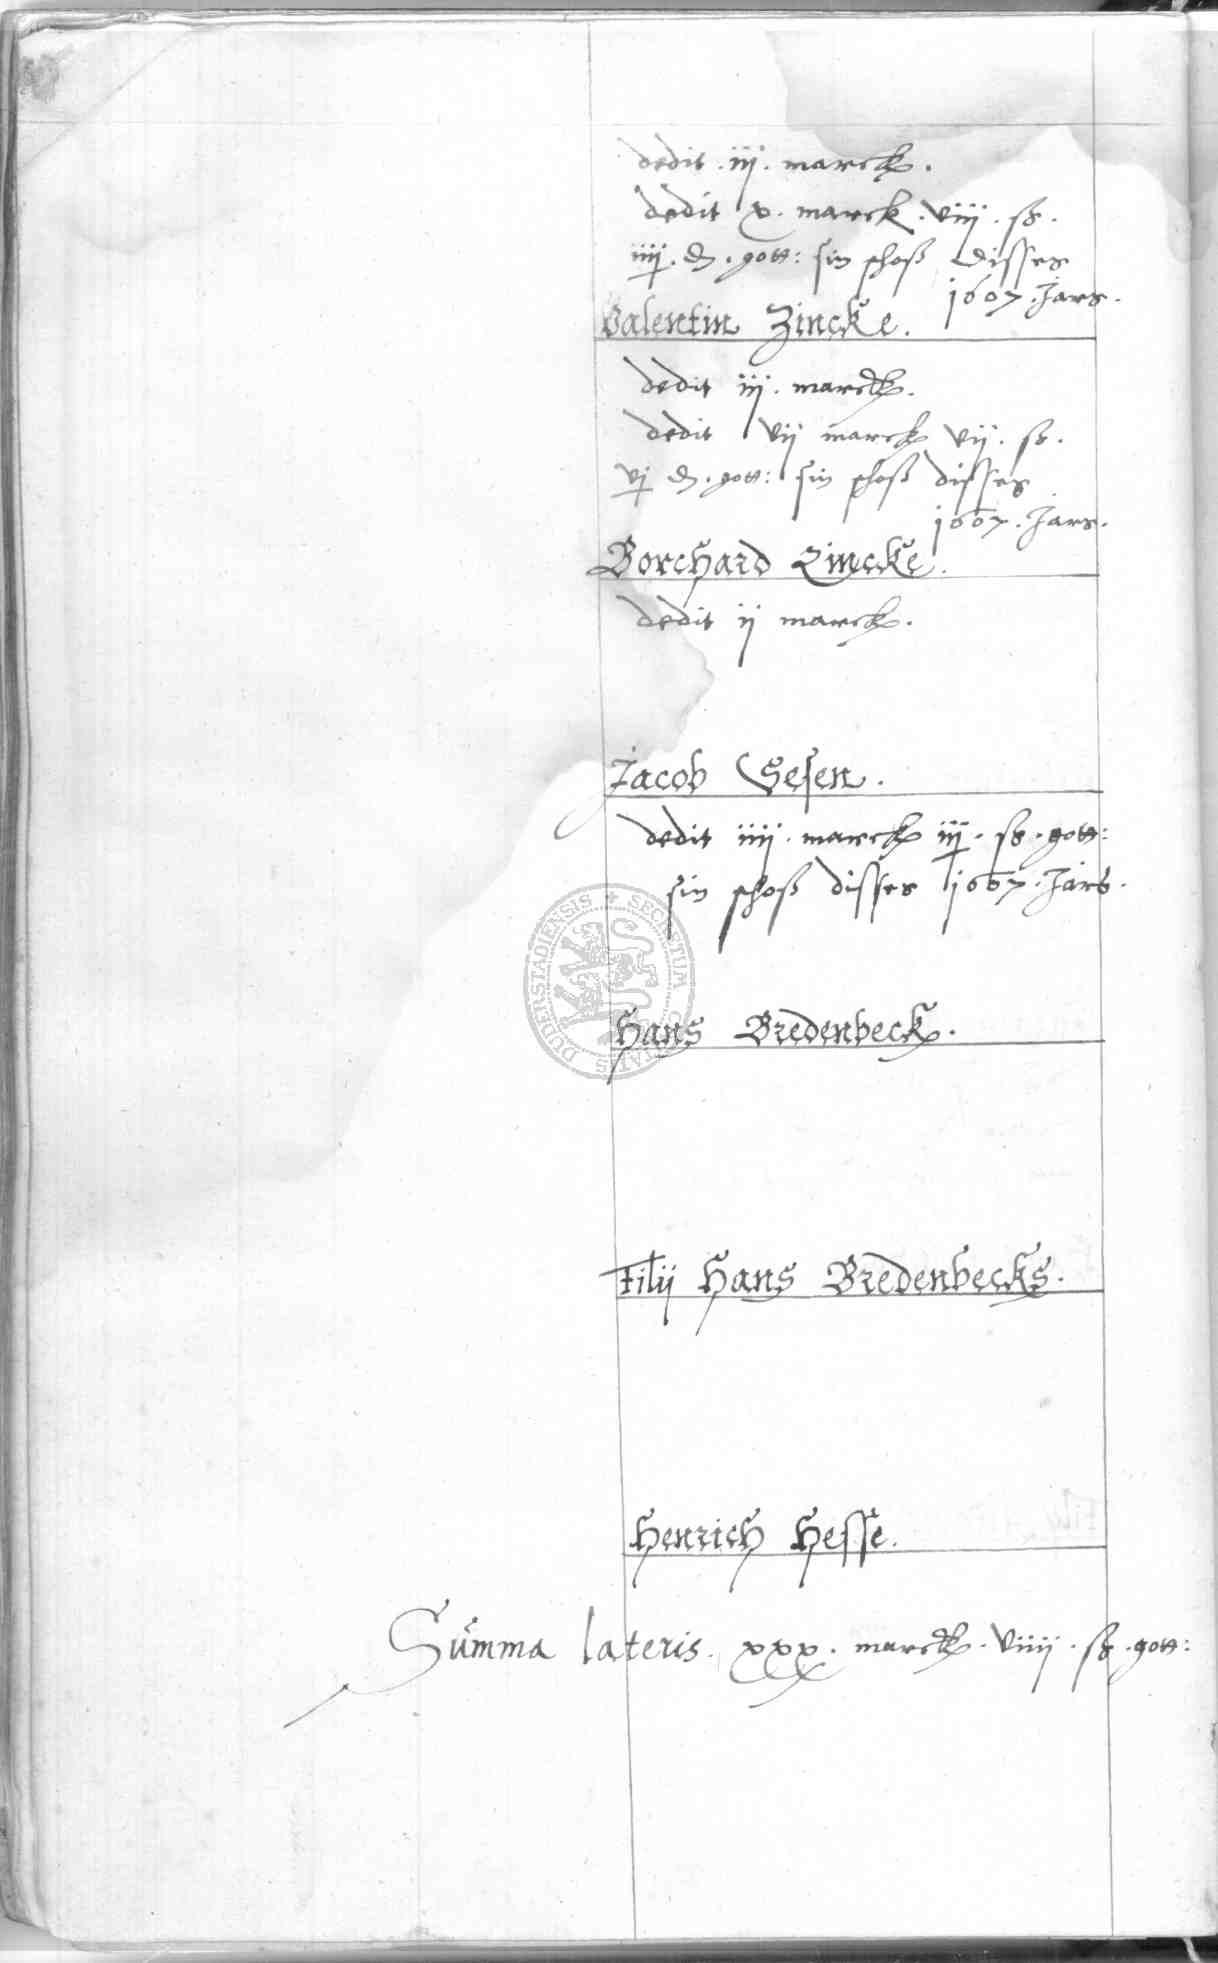 dedit . iij . marck .
dedit x . marck . viij . ß .
iiij . d . gott : sin schoß disses
1607 . Jars .
Valentin Zincke .
dedit iij . marck .
dedit vij marck vij . ß .
vj d . gott : sin schoß disses
1607 . Jars .
Borchard Zincke .
dedit ij marck .
Jacob Gesen .
dedit iiij . marck iij . ß . gott :
sin schoß disses 1607 . Jars .
SECRETUM CIVITATIS DUDERSTADIENSIS
Hans Bredenbeck .
Filij Hans Bredenbecks .
Henrich Hesse .
Summa lateris . xxx . marck . viiij . ß . gott :